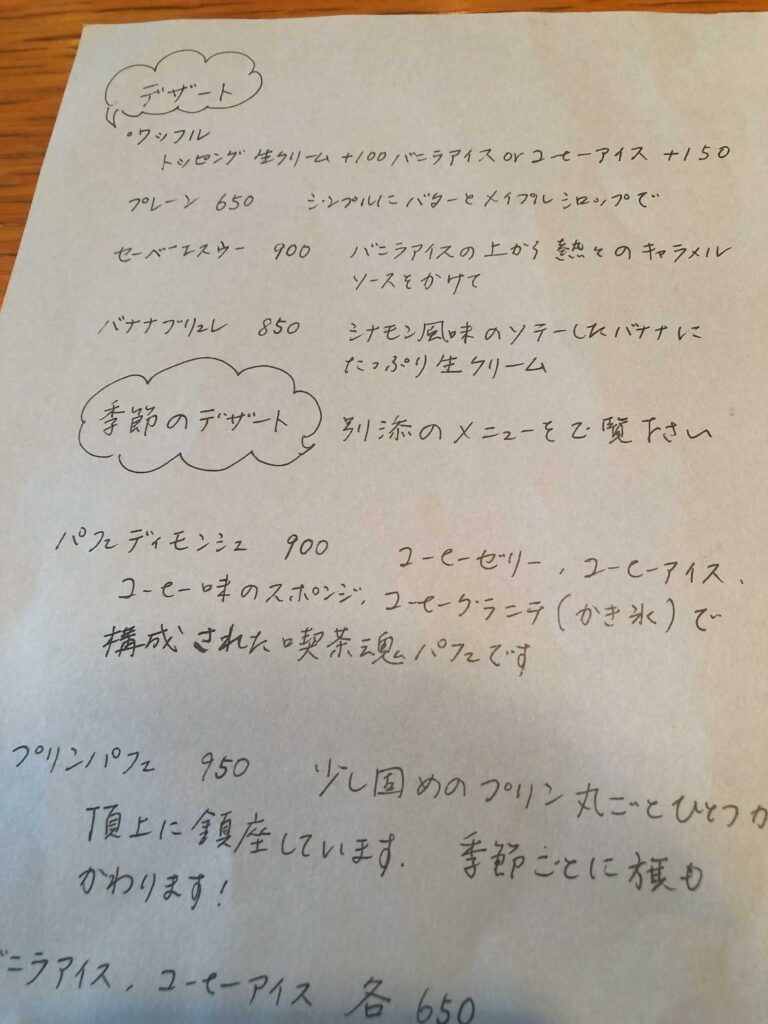 デザート
・ワッフル
トッピング 生クリーム +100 バニラアイス or コーヒーアイス +150
プレーン 650 シンプルにバターとメイプルシロップで
セーベーエスウー 900 バニラアイスの上から熱々のキャラメル
ソースをかけて
バナナブリュレ 850 シナモン風味のソテーしたバナナに
たっぷり生クリーム
季節のデザート 別添のメニューをご覧下さい
パフェディモンシュ 900 コーヒーゼリー、コーヒーアイス、
コーヒー味のスポンジ、コーヒーグラニテ(かき氷)で
構成された喫茶魂パフェです
プリンパフェ 950 少し固めのプリン丸ごとひとつが
頂上に鎮座しています. 季節ごとに旗も
かわります!
バニラアイス、コーヒーアイス 各 650